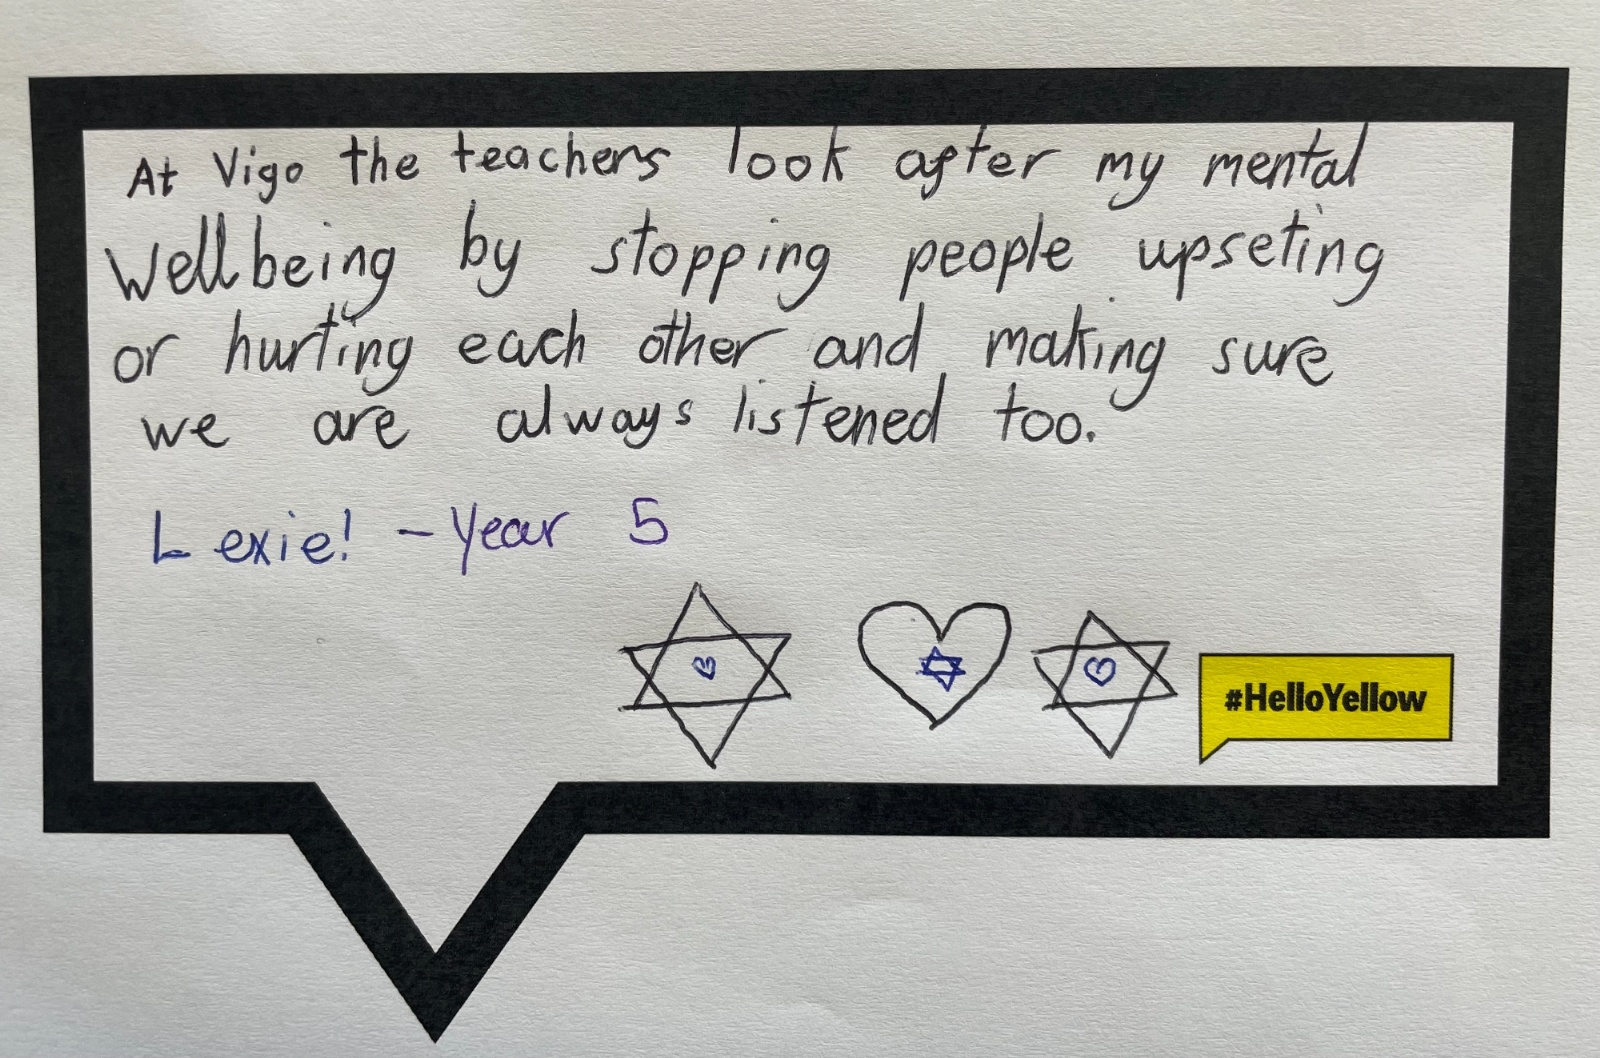 At Vigo the teachers look after my mental
Wellbeing by stopping people upseting
or hurting each other and making sure
we are always listened too.
Lexie! - Year 5
#HelloYellow